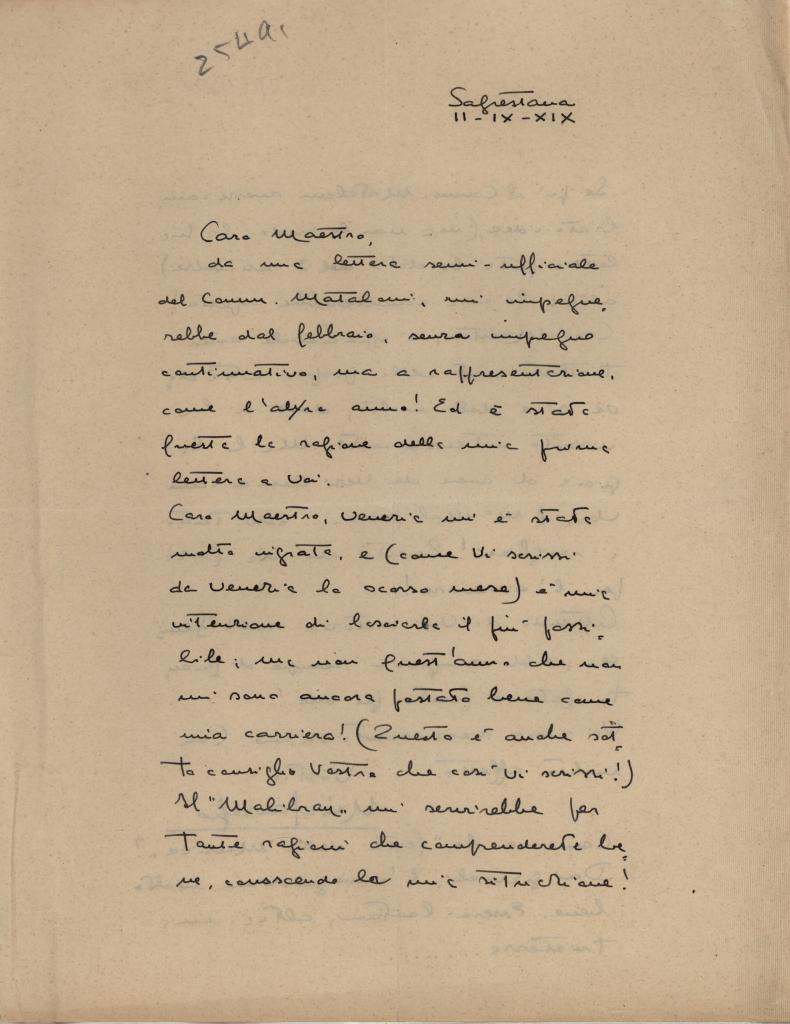 254a.
Sagrestana
11-IX-XIX
Caro Maestro,
da una lettera semi-ufficiale
del Comm. Mataloni, mi impegne,
rebbe dal febbraio, senza impegno
continuativo, ma a rappresentazione,
come l'altro anno! Ed è stata
questa la ragione della mia prima
lettera a Voi.
Caro Maestro, Venezia mi è stata
molto ingrata, e (come Vi scrissi
da Venezia lo scorso mese) è mia
intenzione di lasciarla il più possi,
bile; ma non quest'anno che non
mi sono ancora postato bene come
mia carriera! (Questo è anche sot,
to consiglio Vostro che così Vi scrissi!)
Il "Malibran" mi servirebbe per
tante ragioni che comprenderete be,
ne, conoscendo la mia situazione!